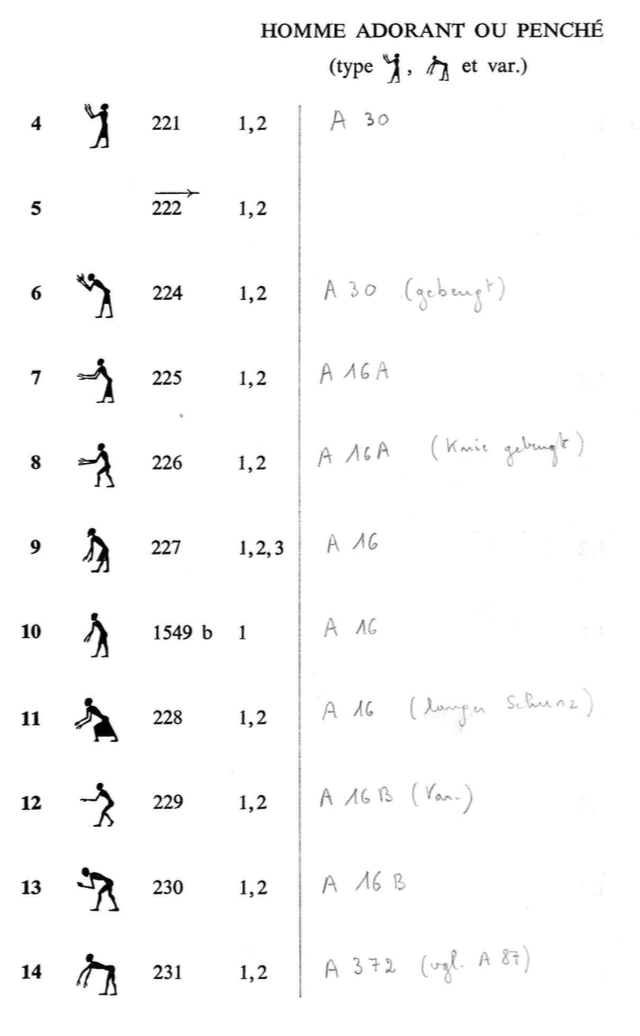 HOMME ADORANT OU PENCHÉ
(type , et var.)
4 221 1,2 A 30
5 222 1,2
6 224 1,2 A 30 (gebeugt)
7 225 1,2 A 16A
8 226 1,2 A 16A (Knie gebeugt)
9 227 1,2,3 A 16
10 1549 b 1 A 16
11 228 1,2 A 16 (langer Schurz)
12 229 1,2 A 16B (Var.)
13 230 1,2 A 16 B
14 231 1,2 A 372 (vgl. A 87)